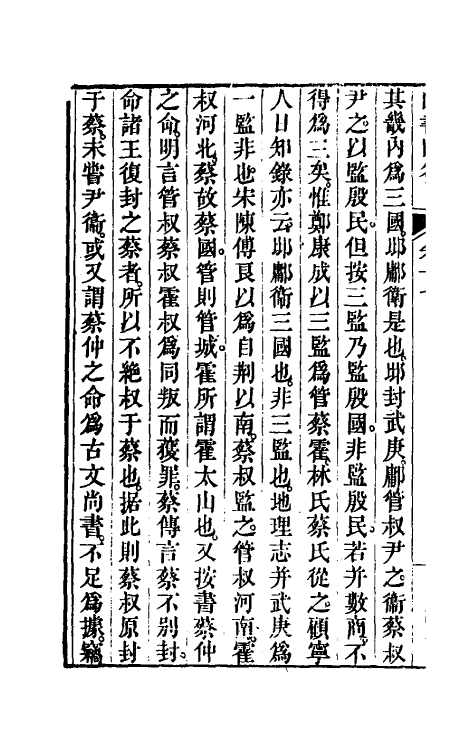 其畿內爲三國。邶鄘衞是也。邶封武庚。鄘管叔尹之。衞蔡叔
尹之。以監殷民。但按三監乃監殷國。非監殷民。若并數商。不
得爲三矣。惟鄭康成以三監爲管蔡霍。林氏蔡氏從之。顧寧
人日知錄亦云。邶鄘衞三國也。非三監也。地理志并武庚爲
一監非也。宋陳傅良以爲自荆以南。蔡叔監之。管叔河南。霍
叔河北。蔡故蔡國。管則管城。霍所謂霍太山也。又按書蔡仲
之命。明言管叔蔡叔霍叔爲同叛而獲罪。蔡傳言蔡不別封。
命諸王復封之蔡者。所以不絶叔于蔡也。据此則蔡叔原封
于蔡。未甞尹衞。或又謂蔡仲之命爲古文尚書。不足爲據。竊